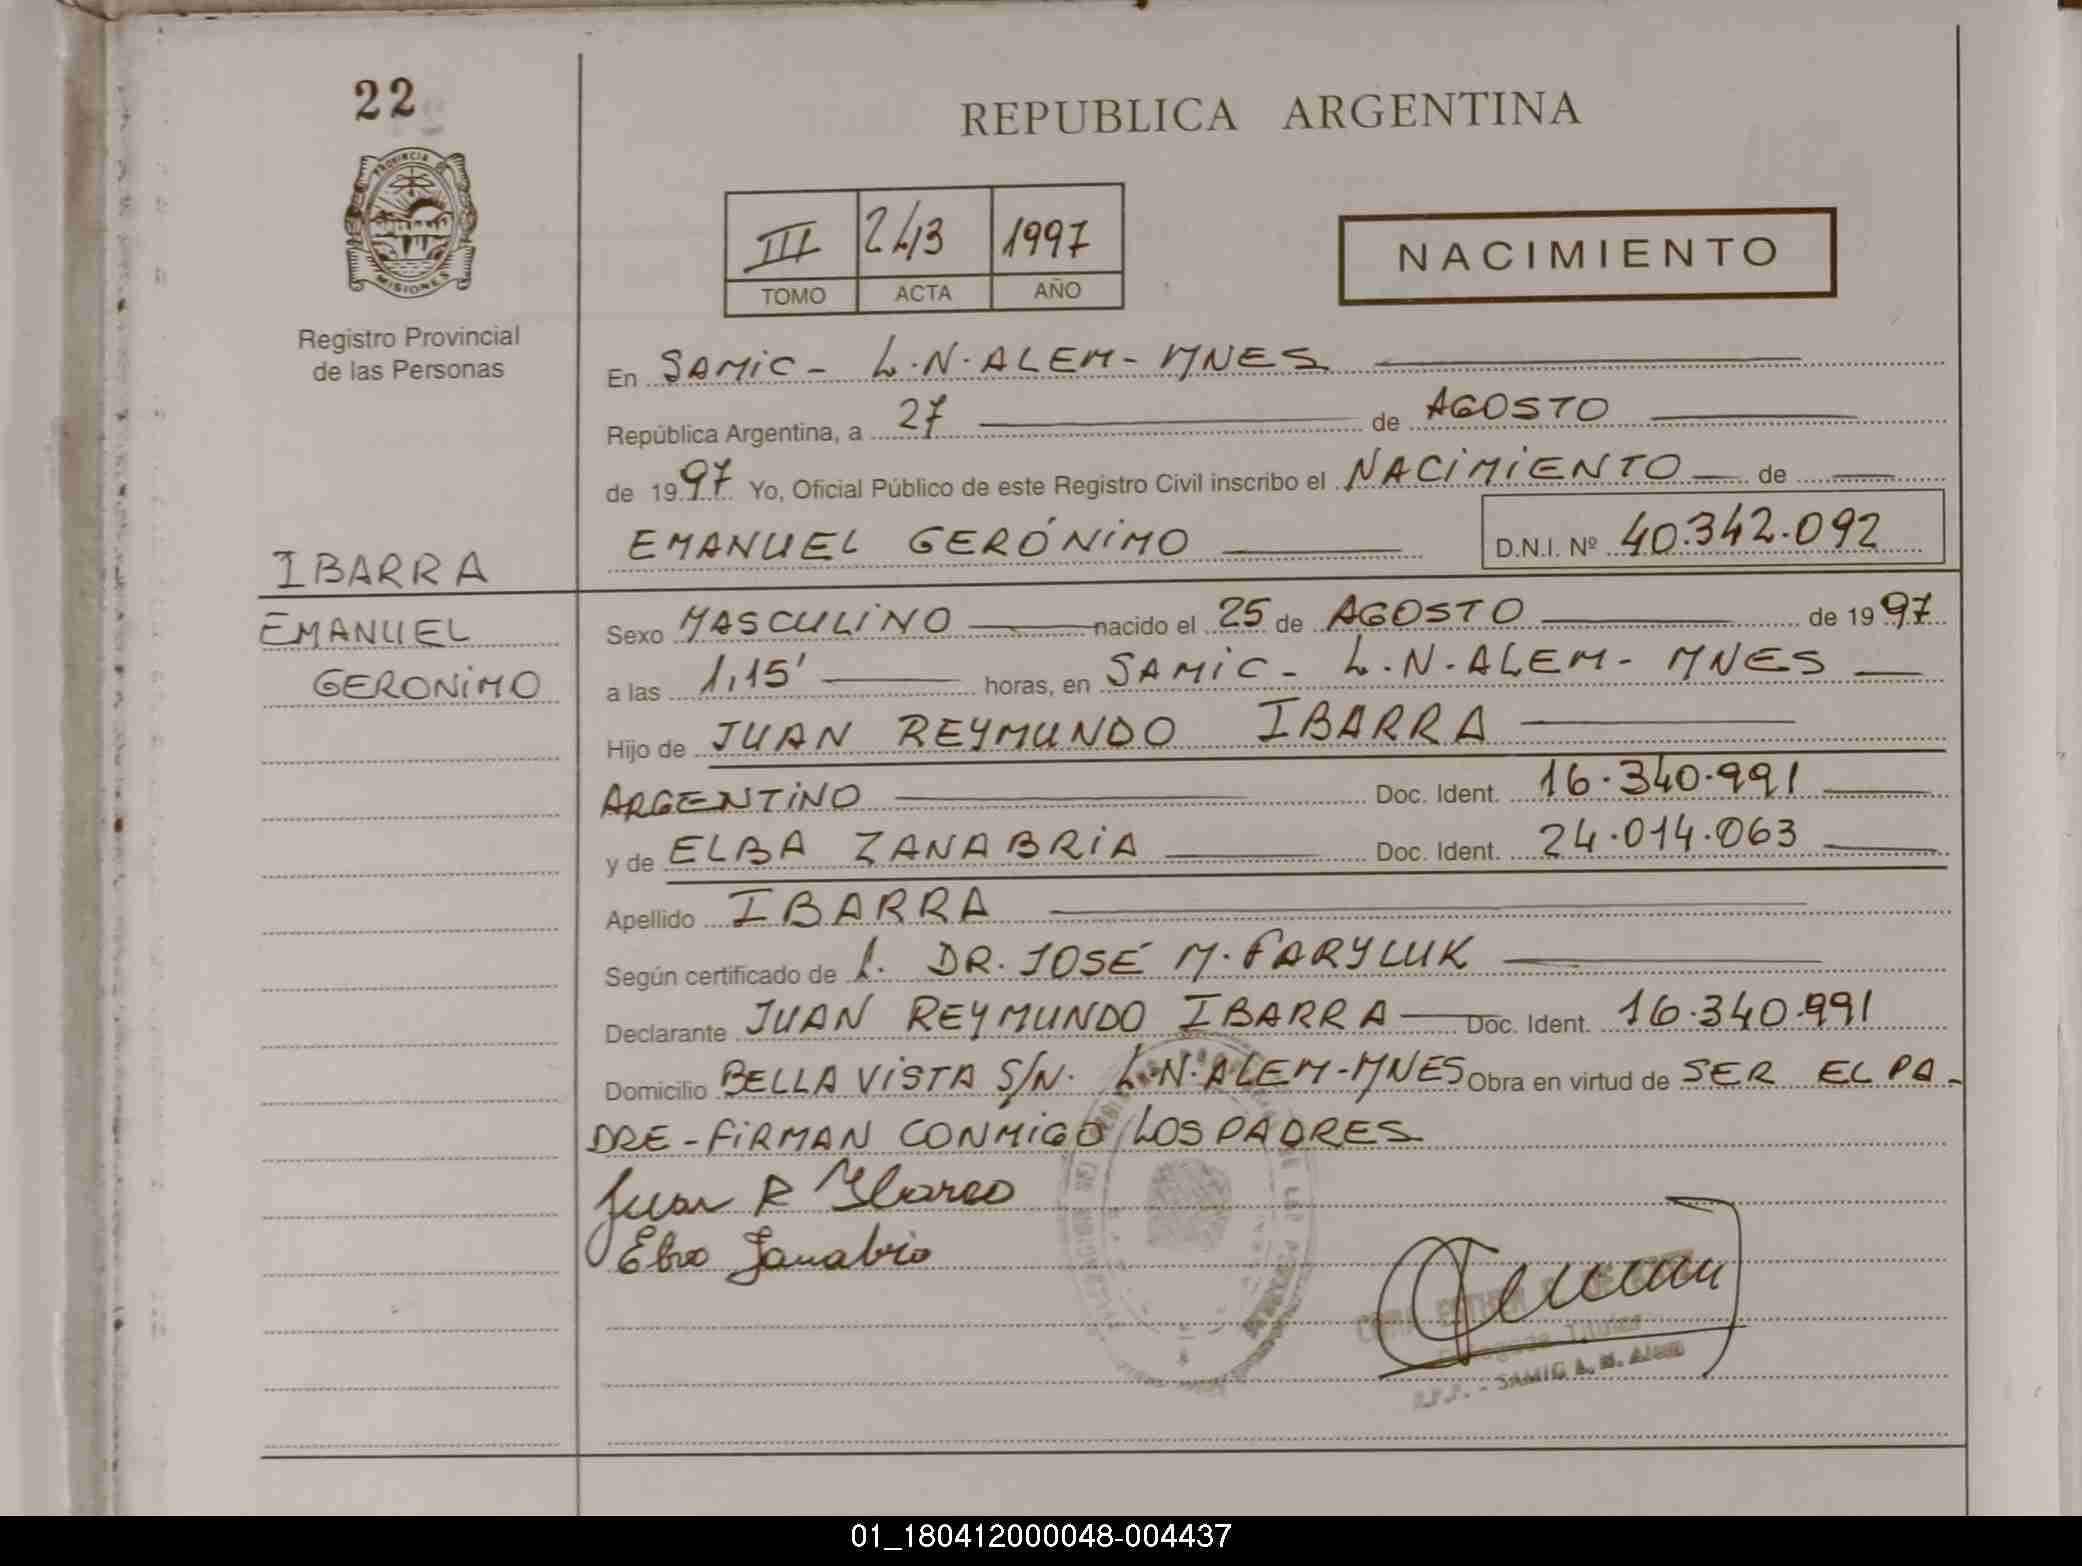 22
REPUBLICA ARGENTINA
PROVINCIA DE
MISIONES
Registro Provincial
de las Personas
III 243 1997
TOMO ACTA AÑO
NACIMIENTO
En SAMIC - L.N. ALEM - MNES
República Argentina, a 27 de AGOSTO
de 1997 Yo, Oficial Público de este Registro Civil inscribo el NACIMIENTO de
EMANUEL GERÓNIMO D.N.I. Nº 40.342.092
IBARRA
EMANUEL
GERONIMO
Sexo MASCULINO nacido el 25 de AGOSTO de 1997
a las 1,15' horas, en SAMIC - L.N. ALEM - MNES
Hijo de JUAN REYMUNDO IBARRA
ARGENTINO Doc. Ident. 16.340.991
y de ELBA ZANABRIA Doc. Ident. 24.014.063
Apellido IBARRA
Según certificado de l. DR. JOSÉ M. FARYLUK
Declarante JUAN REYMUNDO IBARRA Doc. Ident. 16.340.991
Domicilio BELLA VISTA S/N. L.N. ALEM - MNES Obra en virtud de SER EL PA-
DRE - FIRMAN CONMIGO LOS PADRES
Juan R Ibarra
Elva Zanabria
Titular
SAMIC L. N. ALEM
01_180412000048-004437